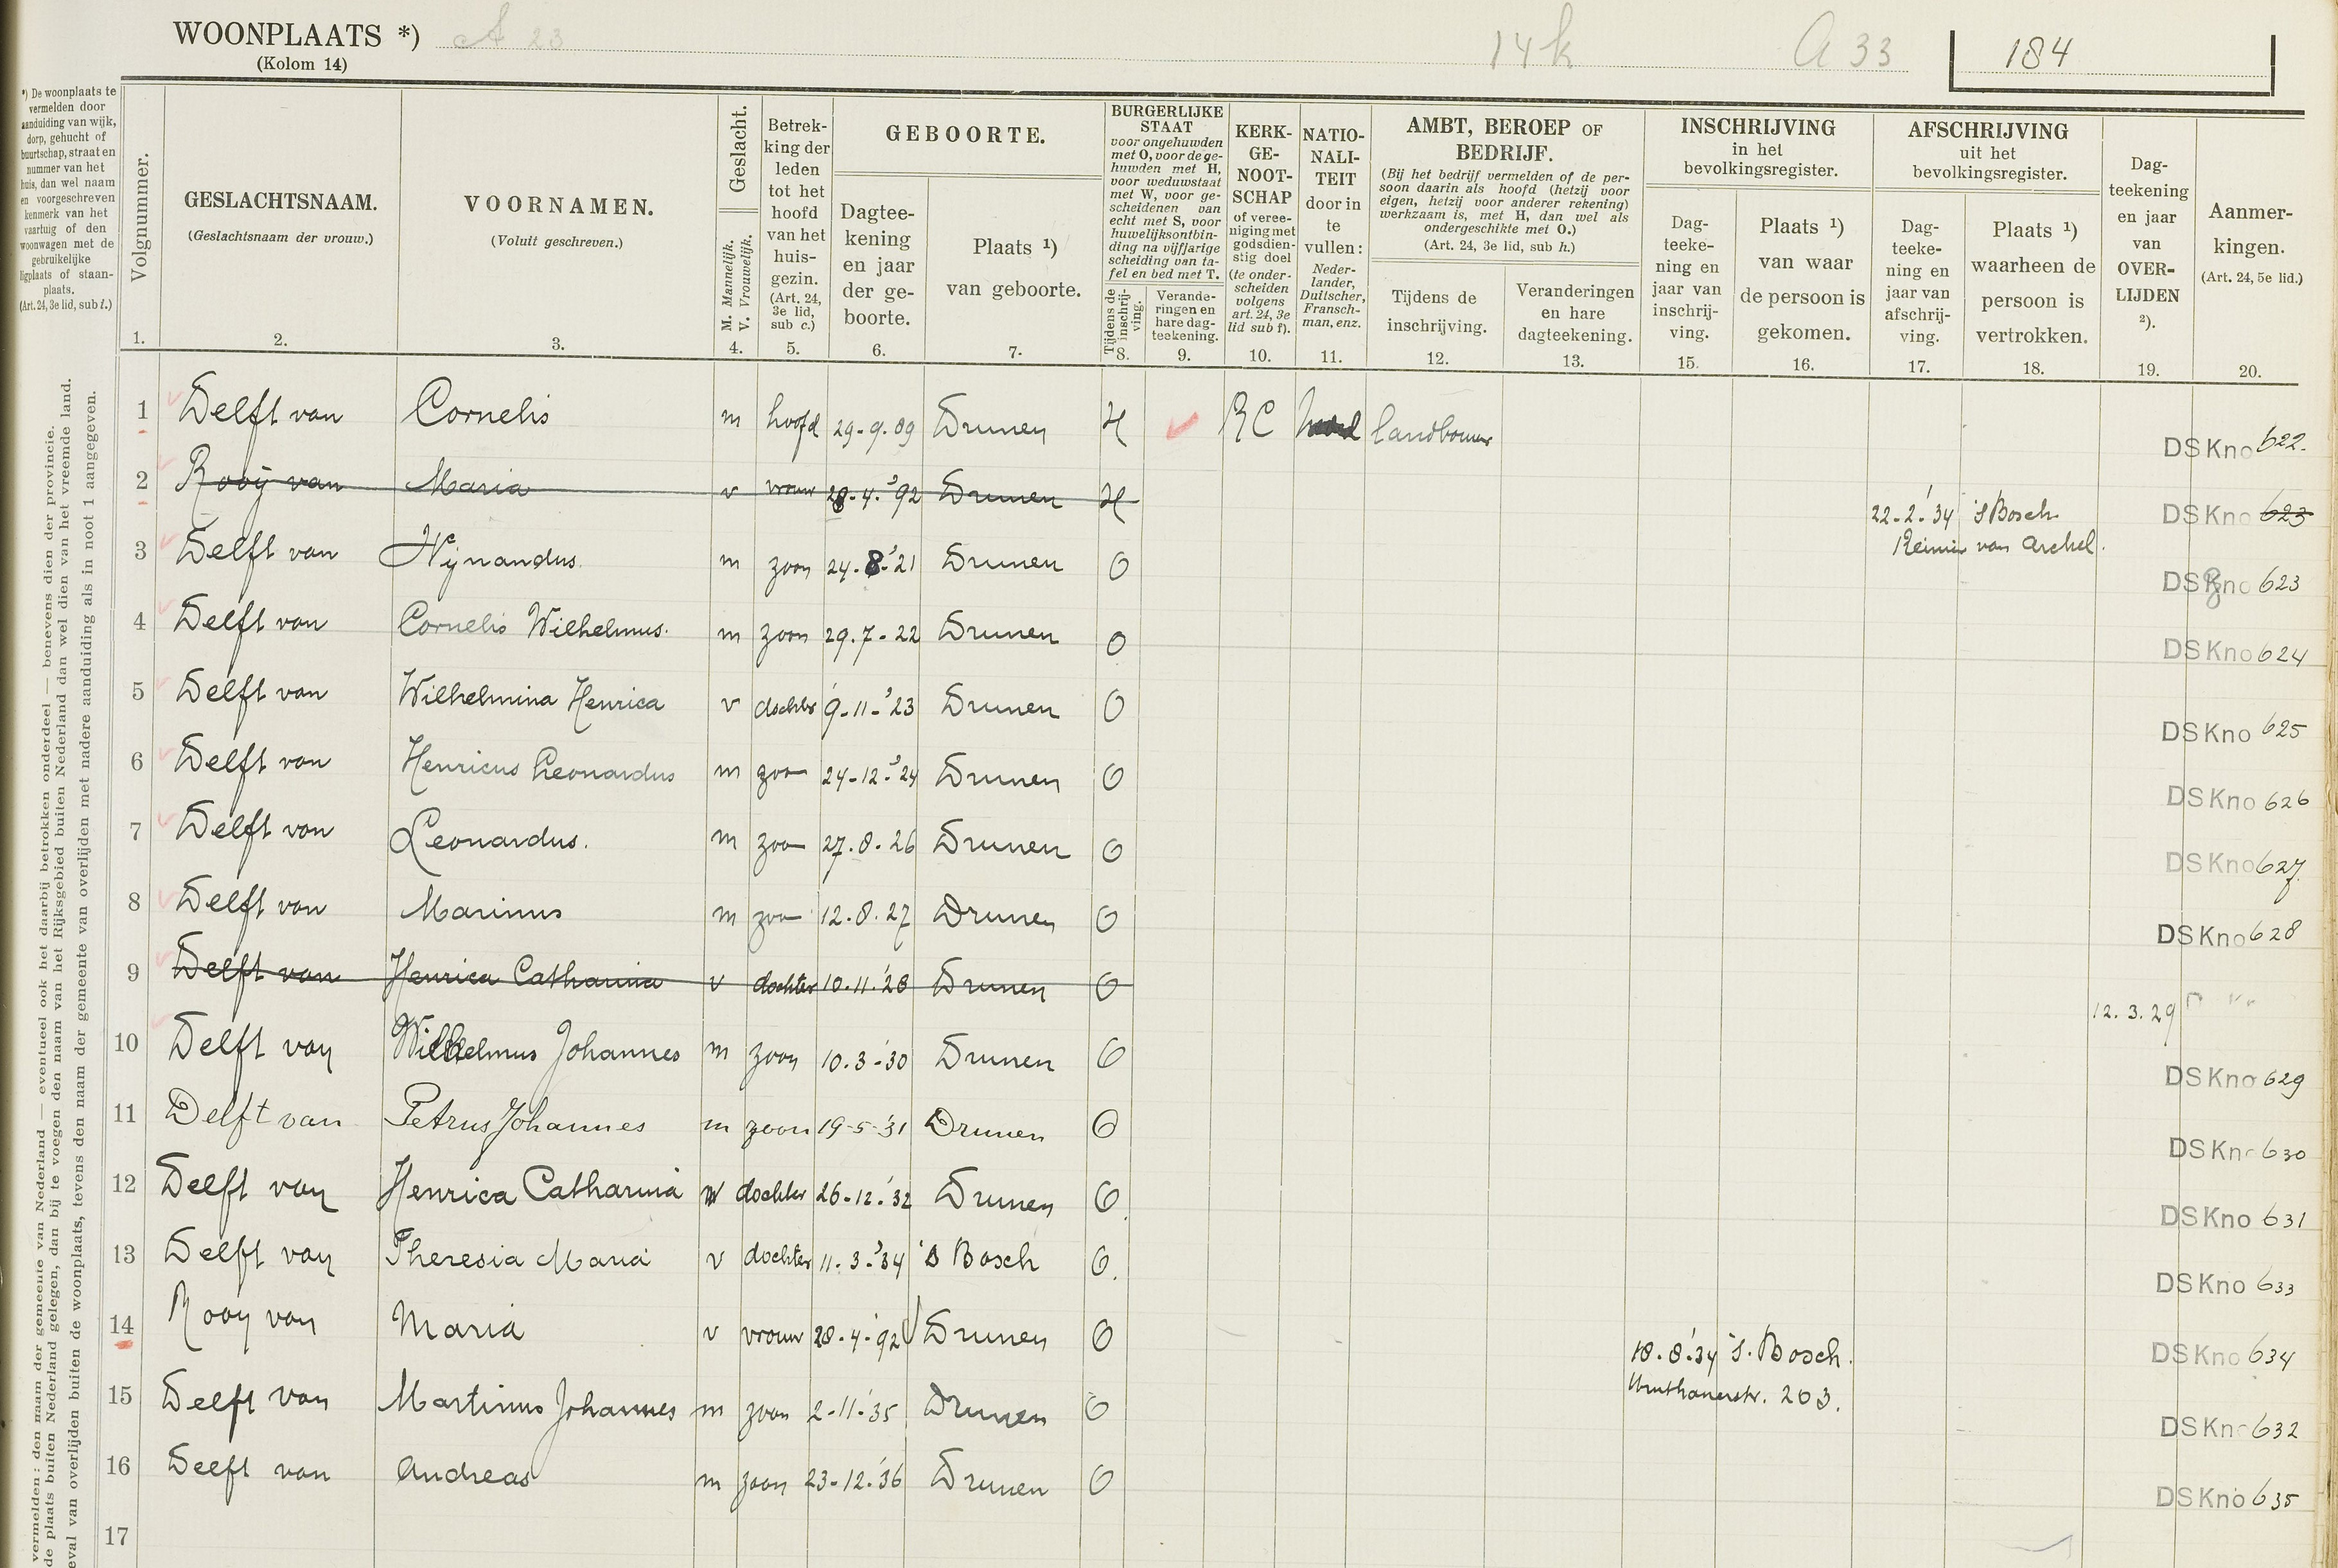 WOONPLAATS *) A 23 14k A 33 184
(Kolom 14)
*) De woonplaats te
vermelden door
aanduiding van wijk,
dorp, gehucht of
buurtschap, straat en
nummer van het
huis, dan wel naam
en voorgeschreven
kenmerk van het
vaartuig of den
woonwagen met de
gebruikelijke
ligplaats of staan-
plaats.
(Art. 24, 3e lid, sub l.)
Volgnummer.
1.
GESLACHTSNAAM.
(Geslachtsnaam der vrouw.)
2.
VOORNAMEN.
(Voluit geschreven.)
3.
Geslacht.
M. Mannelijk.
V. Vrouwelijk.
4.
Betrek-
king der
leden
tot het
hoofd
van het
huis-
gezin.
(Art. 24,
3e lid,
sub c.)
5.
GEBOORTE.
Dagtee-
kening
en jaar
der ge-
boorte.
6.
Plaats ¹)
van geboorte.
7.
BURGERLIJKE
STAAT
voor ongehuwden
met O, voor de ge-
huwden met H,
voor weduwstaat
met W, voor ge-
scheidenen van
echt met S, voor
huwelijksontbin-
ding na vijfjarige
scheiding van ta-
fel en bed met T.
Tijdens de
inschrij-
ving.
8.
Verande-
ringen en
hare dag-
teekening.
9.
KERK-
GE-
NOOT-
SCHAP
of veree-
niging met
godsdien-
stig doel
(te onder-
scheiden
volgens
art. 24, 3e
lid sub f).
10.
NATIO-
NALI-
TEIT
door in
te
vullen:
Neder-
lander,
Duitscher,
Fransch-
man, enz.
11.
AMBT, BEROEP OF
BEDRIJF.
(Bij het bedrijf vermelden of de per-
soon daarin als hoofd (hetzij voor
eigen, hetzij voor anderer rekening)
werkzaam is, met H, dan wel als
ondergeschikte met O.)
(Art. 24, 3e lid, sub h.)
Tijdens de
inschrijving.
12.
Veranderingen
en hare
dagteekening.
13.
INSCHRIJVING
in het
bevolkingsregister.
Dag-
teeke-
ning en
jaar van
inschrij-
ving.
15.
Plaats ¹)
van waar
de persoon is
gekomen.
16.
AFSCHRIJVING
uit het
bevolkingsregister.
Dag-
teeke-
ning en
jaar van
afschrij-
ving.
17.
Plaats ¹)
waarheen de
persoon is
vertrokken.
18.
Dag-
teekening
en jaar
van
OVER-
LIJDEN
²).
19.
Aanmer-
kingen.
(Art. 24, 5e lid.)
20.
1 Delft van Cornelis m hoofd 29-9.09 Drunen H RC landbouwer DSKno 622.
2 Rooij van Maria v vrouw 28-4-'92 Drunen H 22-2-'34 'sBosch DSKno 623
Reinier van Arckel.
3 Delft van Wijnandus. m zoon 24-8-'21 Drunen O DSKno 623
4 Delft van Cornelis Wilhelmus. m zoon 29.7-22 Drunen O DSKno 624
5 Delft van Wilhelmina Henrica v dochter 9-11-'23 Drunen O DSKno 625
6 Delft van Henricus Leonardus m zoon 24-12-'24 Drunen O DSKno 626
7 Delft van Leonardus. m zoon 27.8.26 Drunen O DSKno 627
8 Delft van Marinus m zoon 12.8.27 Drunen O DSKno 628
9 Delft van Henrica Catharina v dochter 10.11.'28 Drunen O 12.3.29
10 Delft van Wilhelmus Johannes m zoon 10.3-'30 Drunen O DSKno 629
11 Delft van Petrus Johannes m zoon 19-5-'31 Drunen O DSKno 630
12 Delft van Henrica Catharina v dochter 26-12-'32 Drunen O. DSKno 631
13 Delft van Theresia Maria v dochter 11-3-'34 's Bosch O. DSKno 633
14 Rooy van Maria v vrouw 28-4-'92 Drunen O 18.8.'34 's.Bosch. DSKno 634
203.
15 Delft van Martinus Johannes m zoon 2-11-'35 Drunen O DSKno 632
16 Delft van Andreas m zoon 23-12-'36 Drunen O DSKno 635
17
vermelden: den naam der gemeente van Nederland — eventueel ook het daarbij betrokken onderdeel — benevens dien der provincie.
de plaats buiten Nederland gelegen, dan bij te voegen den naam van het Rijksgebied buiten Nederland dan wel dien van het vreemde land.
eval van overlijden buiten de woonplaats, tevens den naam der gemeente van overlijden met nadere aanduiding als in noot 1 aangegeven.